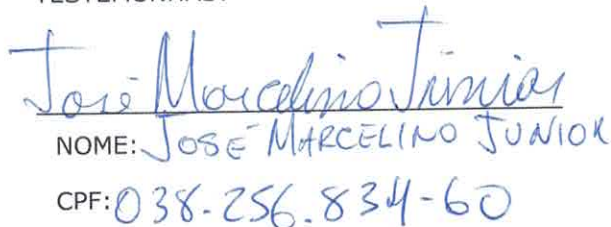 TESTEMUNHAS:
José Marcelino Júnior
NOME: JOSÉ MARCELINO JUNIOR
CPF: 038.256.834-60